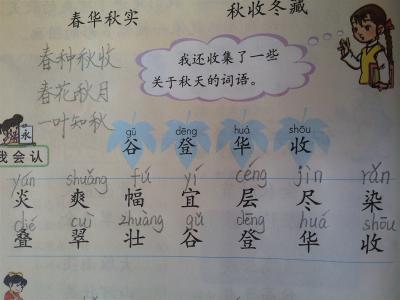 春华秋实 秋收冬藏
春种秋收
春花秋月
一叶知秋
我还收集了一些
关于秋天的词语。
gǔ dēng huá shōu
谷 登 华 收
永
我会认
yán shuǎng fú yí céng jìn rǎn
炎 爽 幅 宜 层 尽 染
dié cuì zhuàng gǔ dēng huá shōu
叠 翠 壮 谷 登 华 收